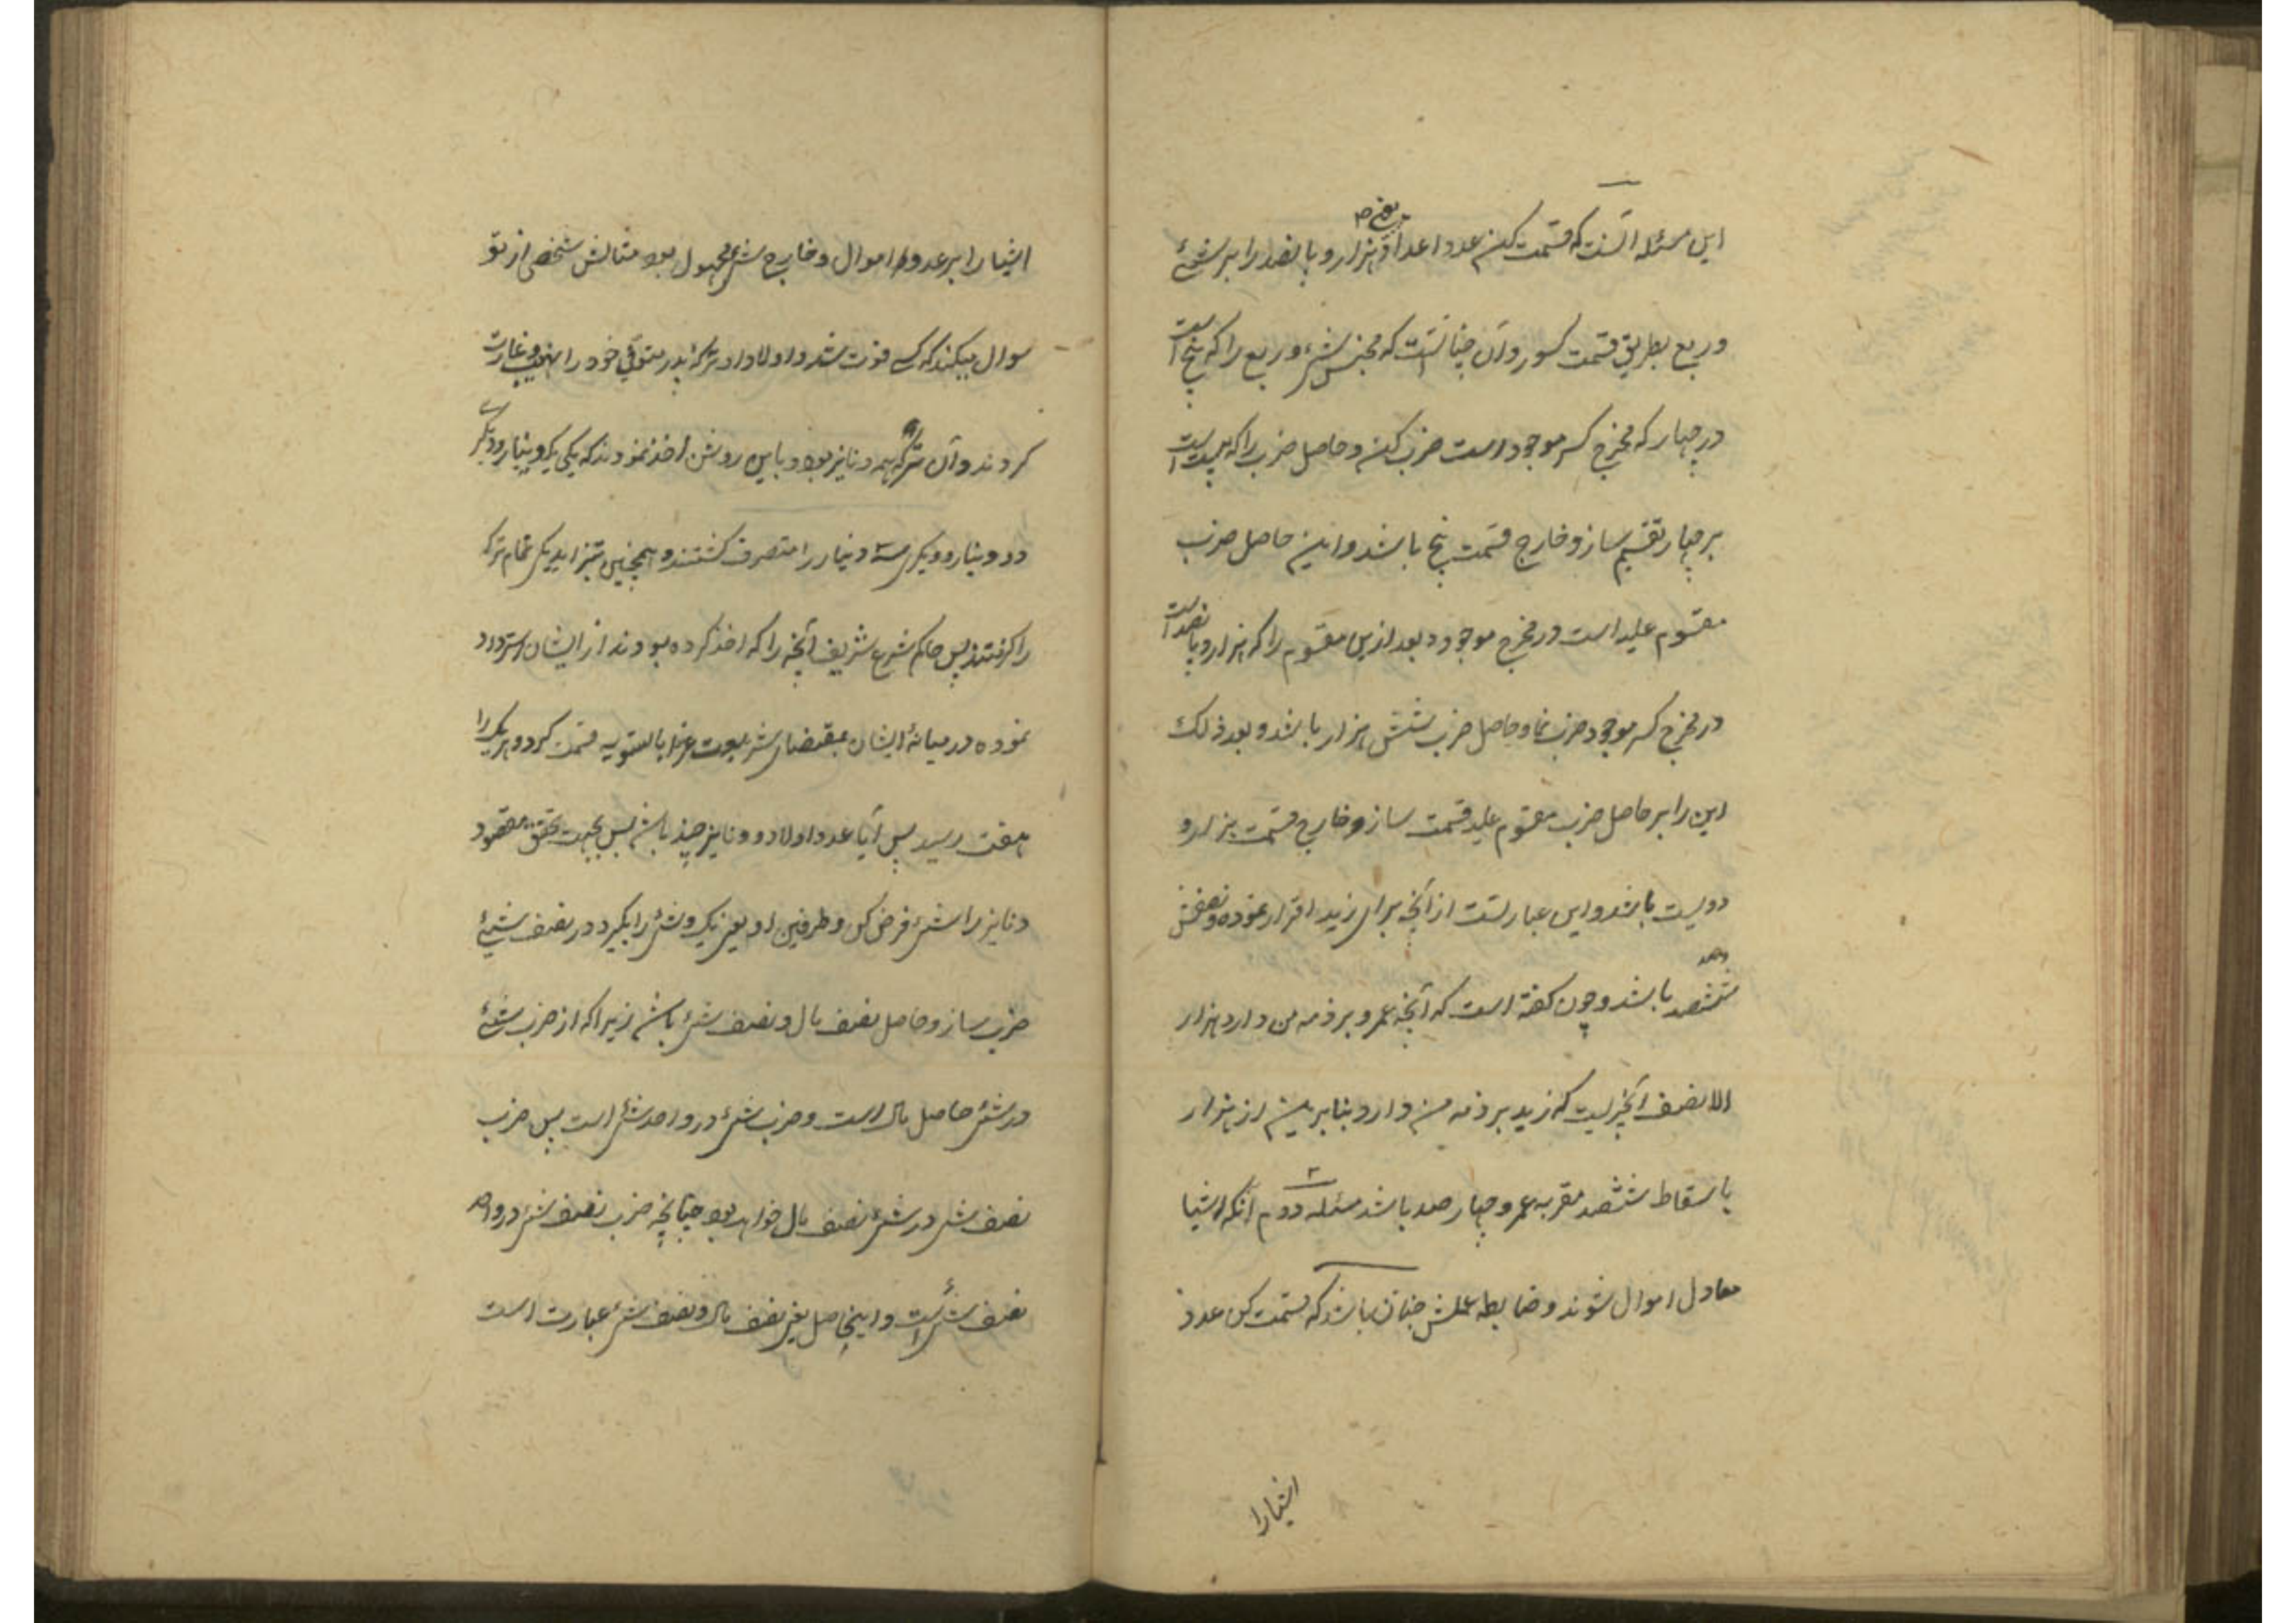 این مسئله آنست که قسمت کن عدد اعداد یعنی هزار و پانصد را بر شئ
و ربع بطریق قسمت کسور و آن چنانست که مجنس شئ و ربع را که پنج است
در چهار که مخرج کسر موجود است ضرب کن و حاصل ضرب را که بیست است
بر چهار تقسیم ساز و خارج قسمت پنج باشد و این حاصل ضرب
مقسوم علیه است در مخرج موجود و بعد ازین مقسوم را که هزار و پانصد است
در مخرج کسر موجود ضرب نما و حاصل ضرب شش هزار باشد و بعد ذلک
این را بر حاصل ضرب مقسوم علیه قسمت ساز و خارج قسمت هزار و
دویست باشد و این عبارتست از آنچه برای زید اقرار نموده و نصفش
ششصد باشد و چون گفته است که آنچه عمرو بر ذمه من دارد هزار
الا نصف آنچیزیست که زید بر ذمه من دارد بنابرین از هزار
باسقاط ششصد مقربه عمرو چهار صد باشد مسئله دوم آنکه اشیا
معادل اموال شوند و ضابطه عملش چنان باشد که قسمت کن عدد
اشیا را
اشیا را بر عدد اموال و خارج شئ مجهول بود مثالش شخصی از تو
سوال میکند که کسی فوت شد و اولاد او ترکهٔ پدر متوفی خود را نهب و غارت
کردند و آن ترکه همه دنانیر بود و باین روش اخذ نمودند که یکی یکدینار و دیگری
دو دینار و دیگری سه دینار را متصرف گشتند و همچنین بتزاید یکی تمام ترکه
را گرفتند پس حاکم شرع شریف آنچه را که اخذ کرده بودند از ایشان استرداد
نموده در میانهٔ ایشان بمقتضای شریعت غرا بالسویه قسمت کرد و هر یک را
هفت رسید پس آیا عدد اولاد و دنانیر چند باشد پس بجهت تحقق مقصود
دنانیر را شئ فرض کن و طرفین او یعنی یک و شئ را بگیر و در نصف شئ
ضرب ساز و حاصل نصف مال و نصف شئ باشد زیرا که از ضرب شئ
در شئ حاصل مال است و ضرب شئ در واحد شئ است پس ضرب
نصف شئ در شئ نصف مال خواهد بود چنانچه ضرب نصف شئ در واحد
نصف شئ است و اینحاصل یعنی نصف مال و نصف شئ عبارت است